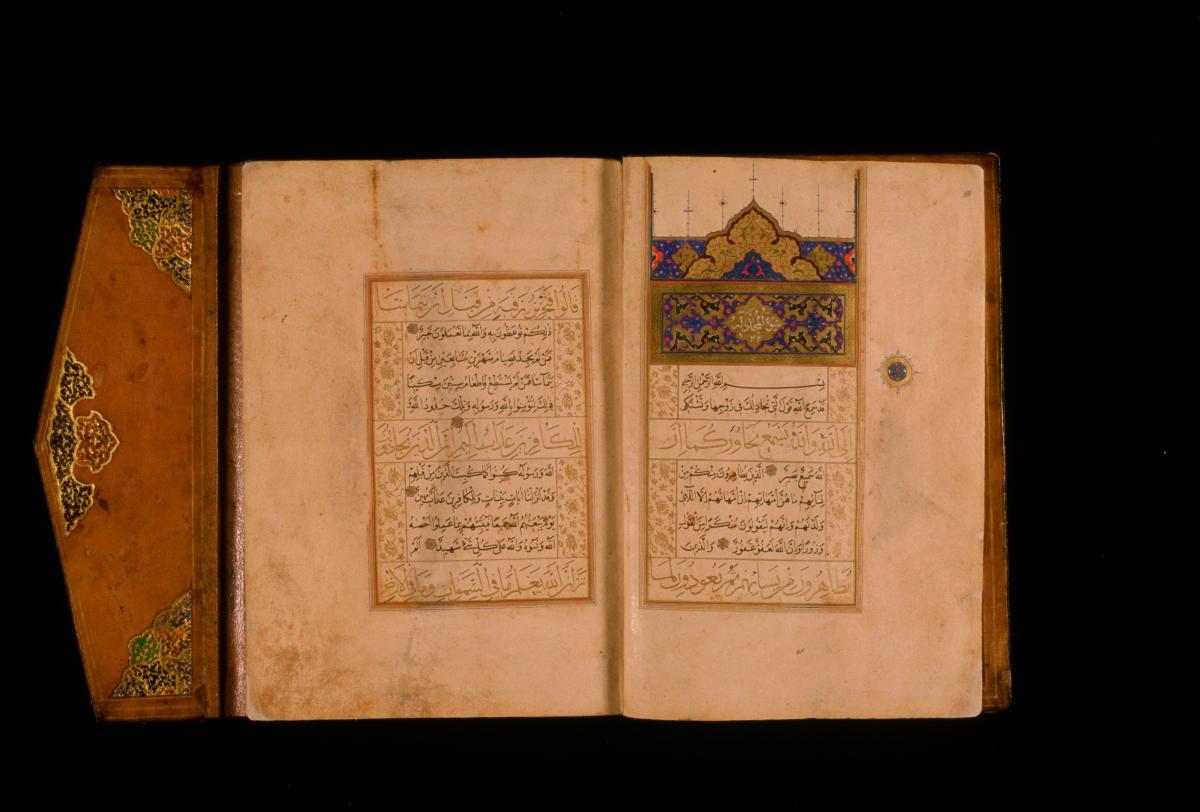 سورة المجادلة
بسم الله الرحمن الرحيم
قد سمع الله قول التي تجادلك في زوجها وتشتكي
إلى الله والله يسمع تحاوركما إن
الله سميع بصير الذين يظاهرون منكم من
نسائهم ما هن أمهاتهم إن أمهاتهم إلا اللائي
ولدنهم وإنهم ليقولون منكرا من القول
وزورا وإن الله لعفو غفور والذين
يظاهرون من نسائهم ثم يعودون لما
قالوا فتحرير رقبة من قبل أن يتماسا
ذلكم توعظون به والله بما تعملون خبير
فمن لم يجد فصيام شهرين متتابعين من قبل أن
يتماسا فمن لم يستطع فإطعام ستين مسكينا
ذلك لتؤمنوا بالله ورسوله وتلك حدود الله
وللكافرين عذاب أليم إن الذين يحادون
الله ورسوله كبتوا كما كبت الذين من قبلهم
وقد أنزلنا آيات بينات وللكافرين عذاب مهين
يوم يبعثهم الله جميعا فينبئهم بما عملوا أحصاه
الله ونسوه والله على كل شيء شهيد ألم
تر أن الله يعلم ما في السموات وما في الأرض